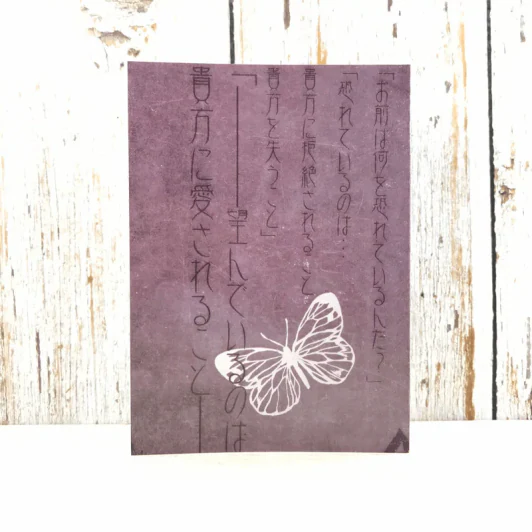 「お前は何を恐れているんだ?」
「恐れているのは…
貴方に拒絶されること。
貴方を失うこと」
「――望んでいるのは
貴方に愛されること――